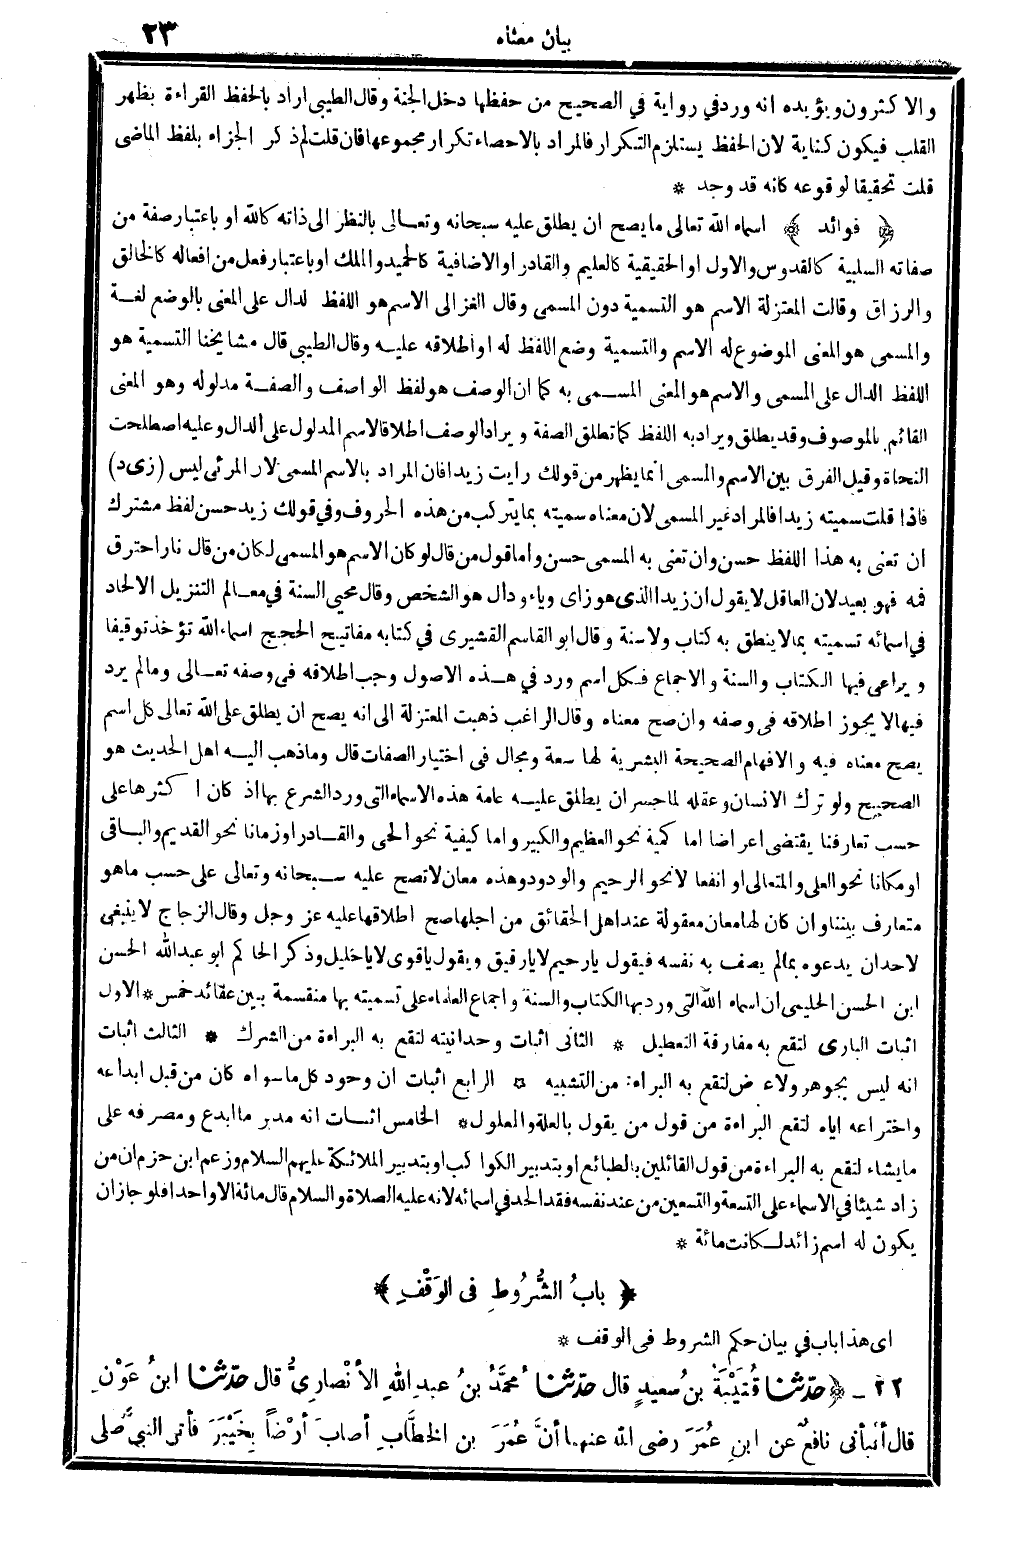 بيان معناه ٢٣
والاكثرون ويؤيده انه ورد في رواية في الصحيح من حفظها دخل الجنة وقال الطيبي اراد بالحفظ القراءة بظهر
القلب فيكون كناية لان الحفظ يستلزم التكرار فالمراد بالاحصاء تكرار مجموعها فان قلت لم ذكر الجزاء بلفظ الماضى
قلت تحقيقا لوقوعه كانه قد وجد *
﴿ فوائد ﴾ اسماء الله تعالى ما يصح ان يطلق عليه سبحانه وتعالى بالنظر الى ذاته كالله او باعتبار صفة من
صفاته السلبية كالقدوس والاول او الحقيقية كالعليم والقادر او الاضافية كالحميد والملك او باعتبار فعل من افعاله كالخالق
والرزاق وقالت المعتزلة الاسم هو التسمية دون المسمى وقال الغزالى الاسم هو اللفظ لدال على المعنى بالوضع لغة
والمسمى هو المعنى الموضوع له الاسم والتسمية وضع اللفظ له او اطلاقه عليه وقال الطيبي قال مشايخنا التسمية هو
اللفظ الدال على المسمى والاسم هو المعنى المسمى به كما ان الوصف هو لفظ الواصف والصفة مدلوله وهو المعنى
القائم بالموصوف وقد يطلق ويراد به اللفظ كما تطلق الصفة ويراد الوصف اطلاقا لاسم المدلول على الدال وعليه اصطلحت
النحاة وقيل الفرق بين الاسم والمسمى انما يظهر من قولك رايت زيدا فان المراد بالاسم المسمى لار المرئى ليس (زى د)
فاذا قلت سميته زيدا فالمراد غير المسمى لان معناه سميته بما يتركب من هذه الحروف وفي قولك زيد حسن لفظ مشترك
ان تعنى به هذا اللفظ حسن وان تعنى به المسمى حسن واما قول من قال لو كان الاسم هو المسمى لكان من قال نار احترق
فمه فهو بعيد لان العاقل لا يقول ان زيدا الذى هو زاى وياء ودال هو الشخص وقال محيى السنة في معالم التنزيل الالحاد
في اسمائه تسميته بما لا ينطق به كتاب ولا سنة وقال ابو القاسم القشيرى في كتابه مفاتيح الحجج اسماء الله تؤخذ توقيفا
ويراعى فيها الكتاب والسنة والاجماع فكل اسم ورد في هذه الاصول وجب اطلاقه فى وصفه تعالى وما لم يرد
فيها لا يجوز اطلاقه فى وصفه وان صح معناه وقال الراغب ذهبت المعتزلة الى انه يصح ان يطلق على الله تعالى كل اسم
يصح معناه فيه والافهام الصحيحة البشرية لها سعة ومجال فى اختيار الصفات قال وما ذهب اليه اهل الحديث هو
الصحيح ولو ترك الانسان وعقله لما جسر ان يطلق عليه عامة هذه الاسماء التى ورد الشرع بها اذ كان اكثرها على
حسب تعارفنا يقتضى اعراضا اما كمية نحو العظيم والكبير واما كيفية نحو الحى والقادر او زمانا نحو القديم والباقى
او مكانا نحو العلى والمتعالى او انفعا لا نحو الرحيم والودود وهذه معان لا تصح عليه سبحانه وتعالى على حسب ما هو
متعارف بيننا وان كان لها معان معقولة عند اهل الحقائق من اجلها صح اطلاقها عليه عز وجل وقال الزجاج لا ينبغى
لاحد ان يدعوه بما لم يصف به نفسه فيقول يا رحيم لا يا رقيق ويقول يا قوى لا يا خليل وذكر الحاكم ابو عبدالله الحسن
ابن الحسن الحليمى ان اسماء الله التى ورد بها الكتاب والسنة واجماع العلماء على تسميته بها منقسمة بين عقائد خمس * الاول
اثبات البارى لتقع به مفارقة التعطيل * الثانى اثبات وحدانيته لتقع به البراءة من الشرك * الثالث اثبات
انه ليس بجوهر ولا عرض لتقع به البراءة من التشبيه * الرابع اثبات ان وجود كل ما سواه كان من قبل ابداعه
واختراعه اياه لتقع البراءة من قول من يقول بالعلة والمعلول * الخامس اثبات انه مدبر ما ابدع ومصرفه على
ما يشاء لتقع به البراءة من قول القائلين بالطبائع او بتدبير الكواكب او بتدبير الملائكة عليهم السلام وزعم ابن حزم ان من
زاد شيئا في الاسماء على التسعة والتسعين من عند نفسه فقد الحد في اسمائه لانه عليه الصلاة والسلام قال مائة الا واحدا فلو جاز ان
يكون له اسم زائد لكانت مائة *
﴿ بابُ الشُّرُوطِ فى الوَقْفِ ﴾
اى هذا باب في بيان حكم الشروط فى الوقف *
٢٢ ـ ﴿ حدّثنا قُتَيْبَةُ بنُ سعيدٍ قال حدّثنا مُحمَّدُ بنُ عبدِ اللهِ الأنْصارِىُّ قال حدّثنا ابنُ عَوْنٍ
قال أنْبأنى نافعٌ عن ابنِ عُمَرَ رضى الله عنهما أنَّ عُمَرَ بن الخطَّابِ أصابَ أرْضاً بِخَيْبَرَ فأتى النبيَّ صلى